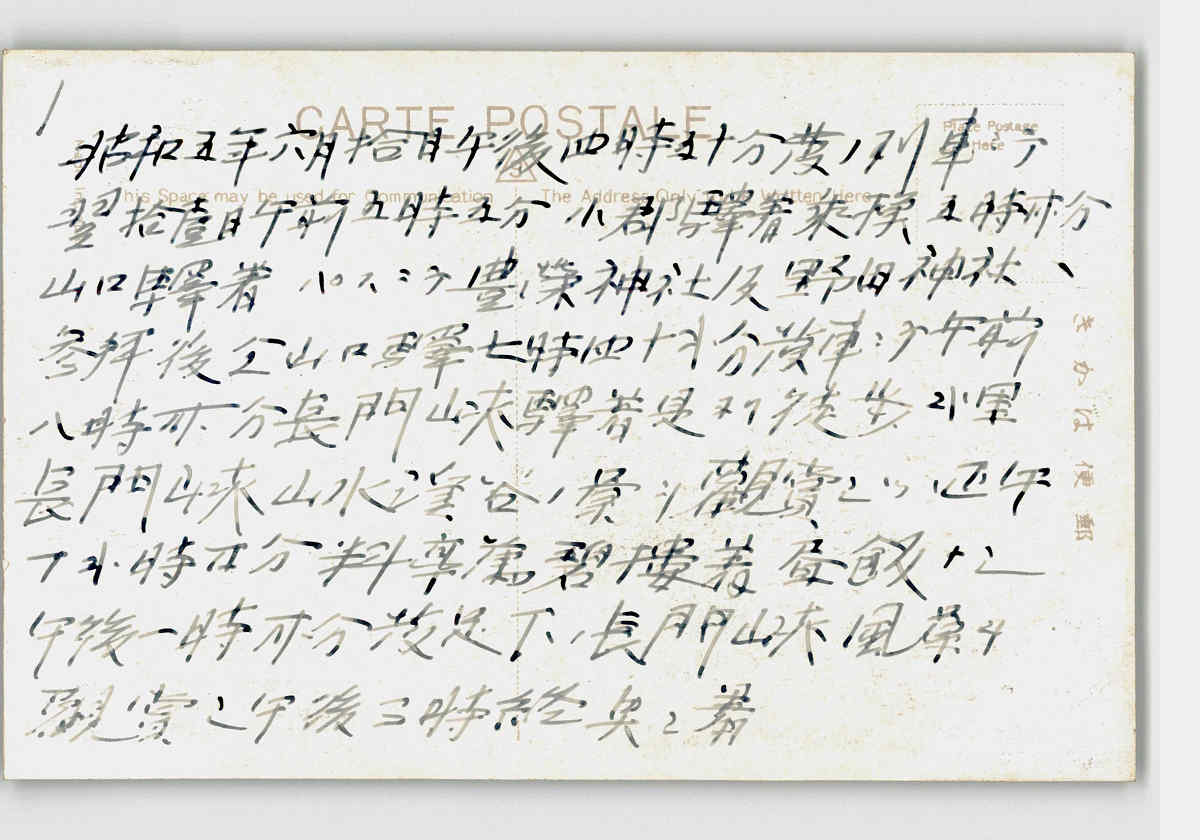 1
CARTE POSTALE
Place Postage
Here
This Space may be used for Communication
The Address Only to be Written Here
昭和五年六月拾日午後四時五十分發ノ列車ニテ
翌拾壹日午前五時五分小郡驛着乗換五時卅分
山口驛着 豊榮神社及野田神社ヘ
参拜後仝山口驛七時四十分發車ニテ午前
八時卅分長門峡驛着是ヨリ徒歩 里
長門峡山水渓谷ノ景ヲ觀賞シツツ正午
十 時 分料亭 碧樓着昼飯ナシ
午後一時卅分發足下ノ長門峡風景ヲ
觀賞シ午後三時終
きかは便郵